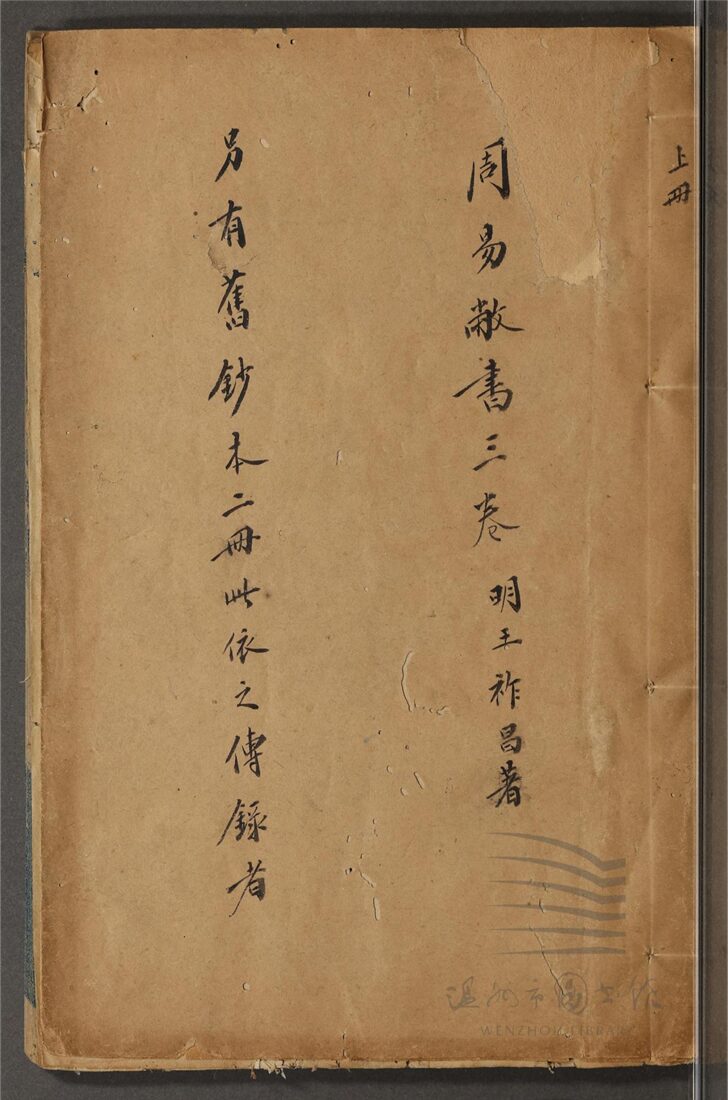 上冊
周易敝書三卷 明王祚昌著
另有舊鈔本二冊此依之傳錄者
温州市圖書館
WENZHOU LIBRARY